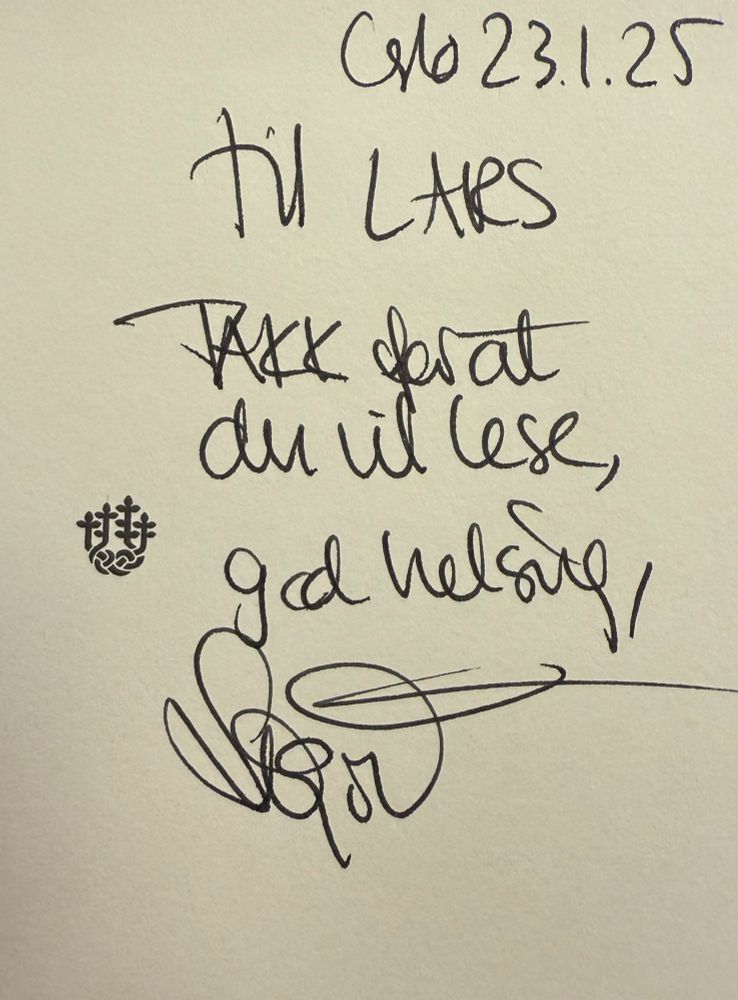 Oslo 23.1.25
til LARS
TAKK for at
du vil lese,
god helsing,